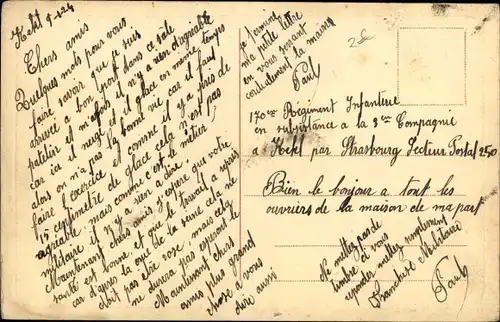 Kehl 9-1-24
Chers amis
Quelques mots pour vous
faire savoir que je suis
arrivé a bon port dans ce sale
patelin et m'afois il n'y a rien d'agréable
car ici il neige et il glace en même temps
alors on n'a pas la bonne vie car il faut
faire l'exercice et comme il y a près de
15 centimètre de glace cela n'est pas
agréable mais comme c'est le métier
militaire il n'y a rien a dire.
Maintenant chers amis j'espère que votre
santé est bonne et que le travail a repri
car d'après la cru de la seine cela ne
doit pas être rose, mais cela
ne durera pas espérons le
Maintenant chers
amis plus grand
chose a vous
dire aussi
je termine
ma petite lettre
en vous serrant
cordialement la main
Paul
170ème Régiment Infanterie
en subsistance a la 3ème Compagnie
a Kehl par Strasbourg Secteur Postal 250
Bien le bonjour a tout les
ouvriers de la maison de ma part
Ne mettez pas de
timbre si vous
repondez mettez simplement
Franchise Militaire
Paul